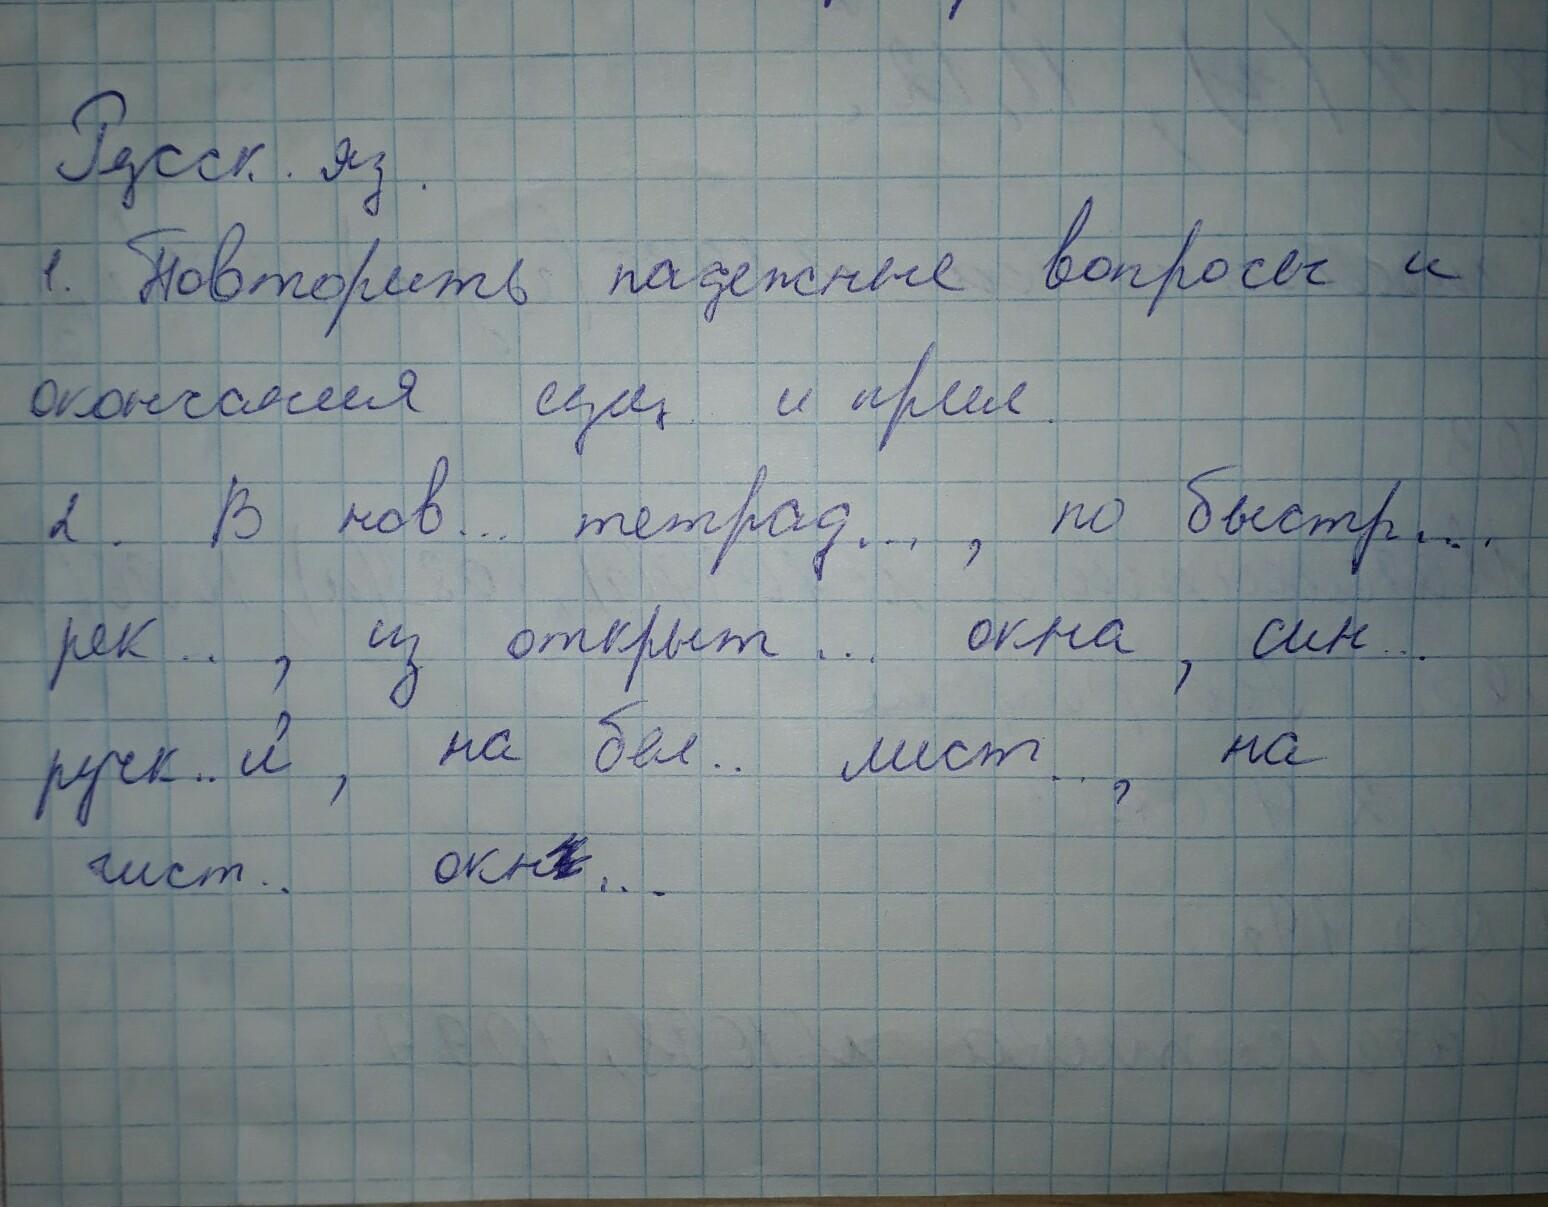 Русск. яз.
1. Повторить падежные вопросы и
окончания сущ и прил.
2. В нов... тетрад..., по быстр...
рек.., из открыт... окна, син...
ручк..й, на бел.. лист.., на
чист.. окн...